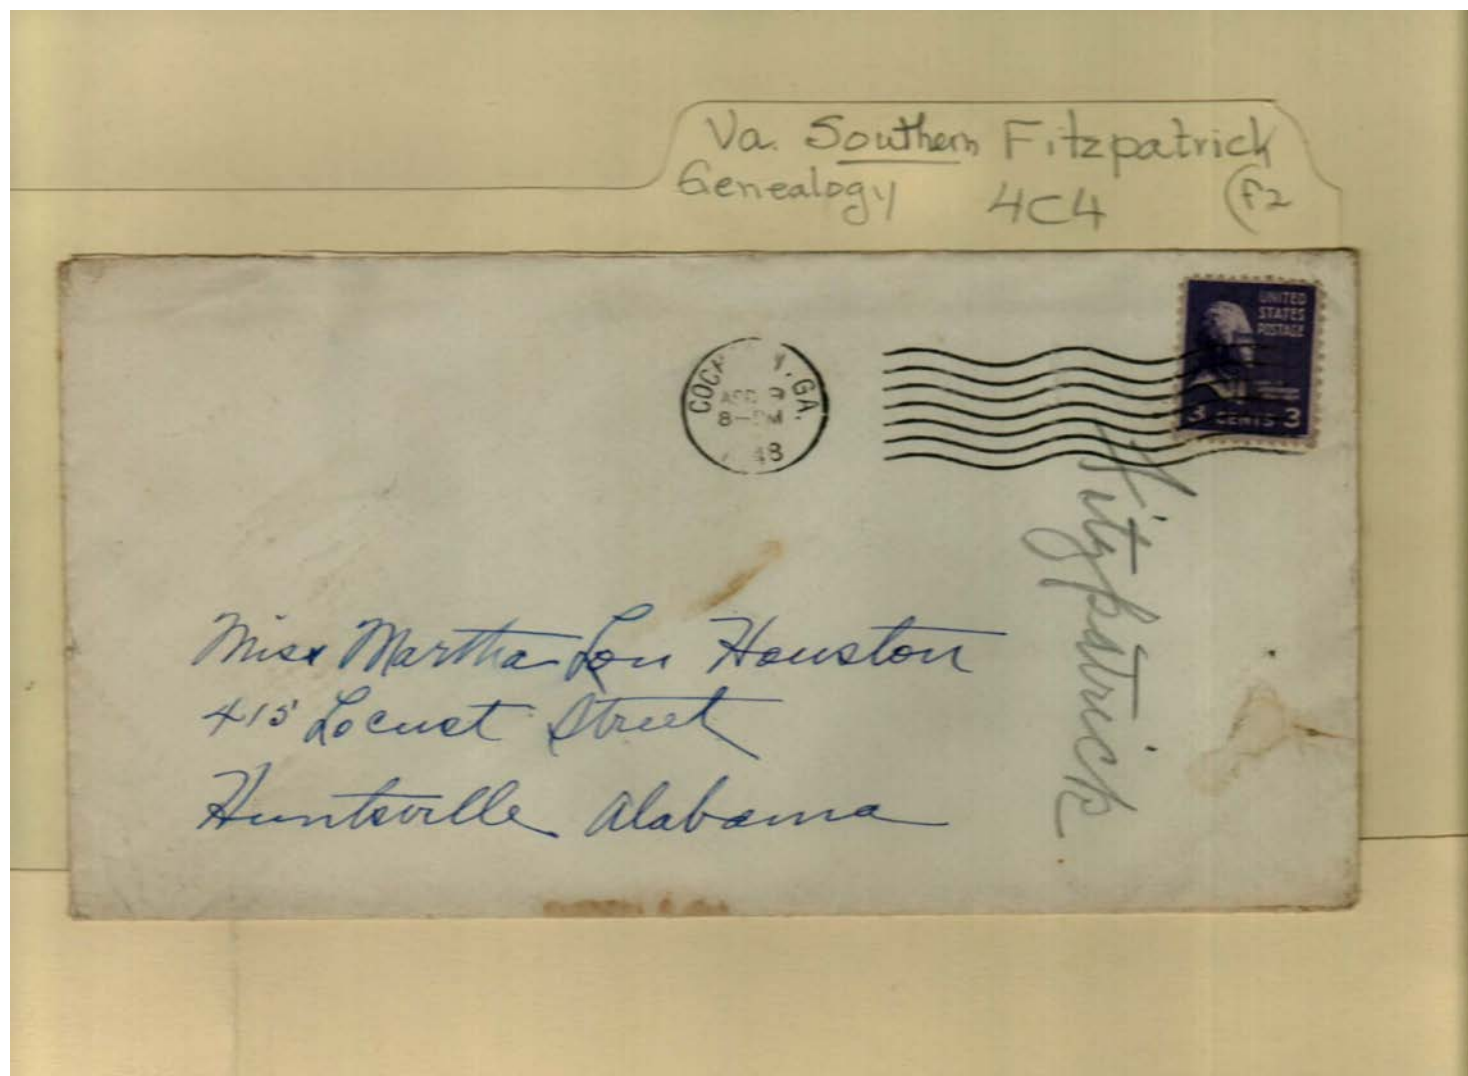 Va. Southern Fitzpatrick
Genealogy 4C4 (F2
UNITED
STATES
POSTAGE
3 CENTS 3
GA.
APR 9
8-PM
48
Fitzpatrick
Miss Martha Lou Houston
415 Locust Street
Huntsville Alabama